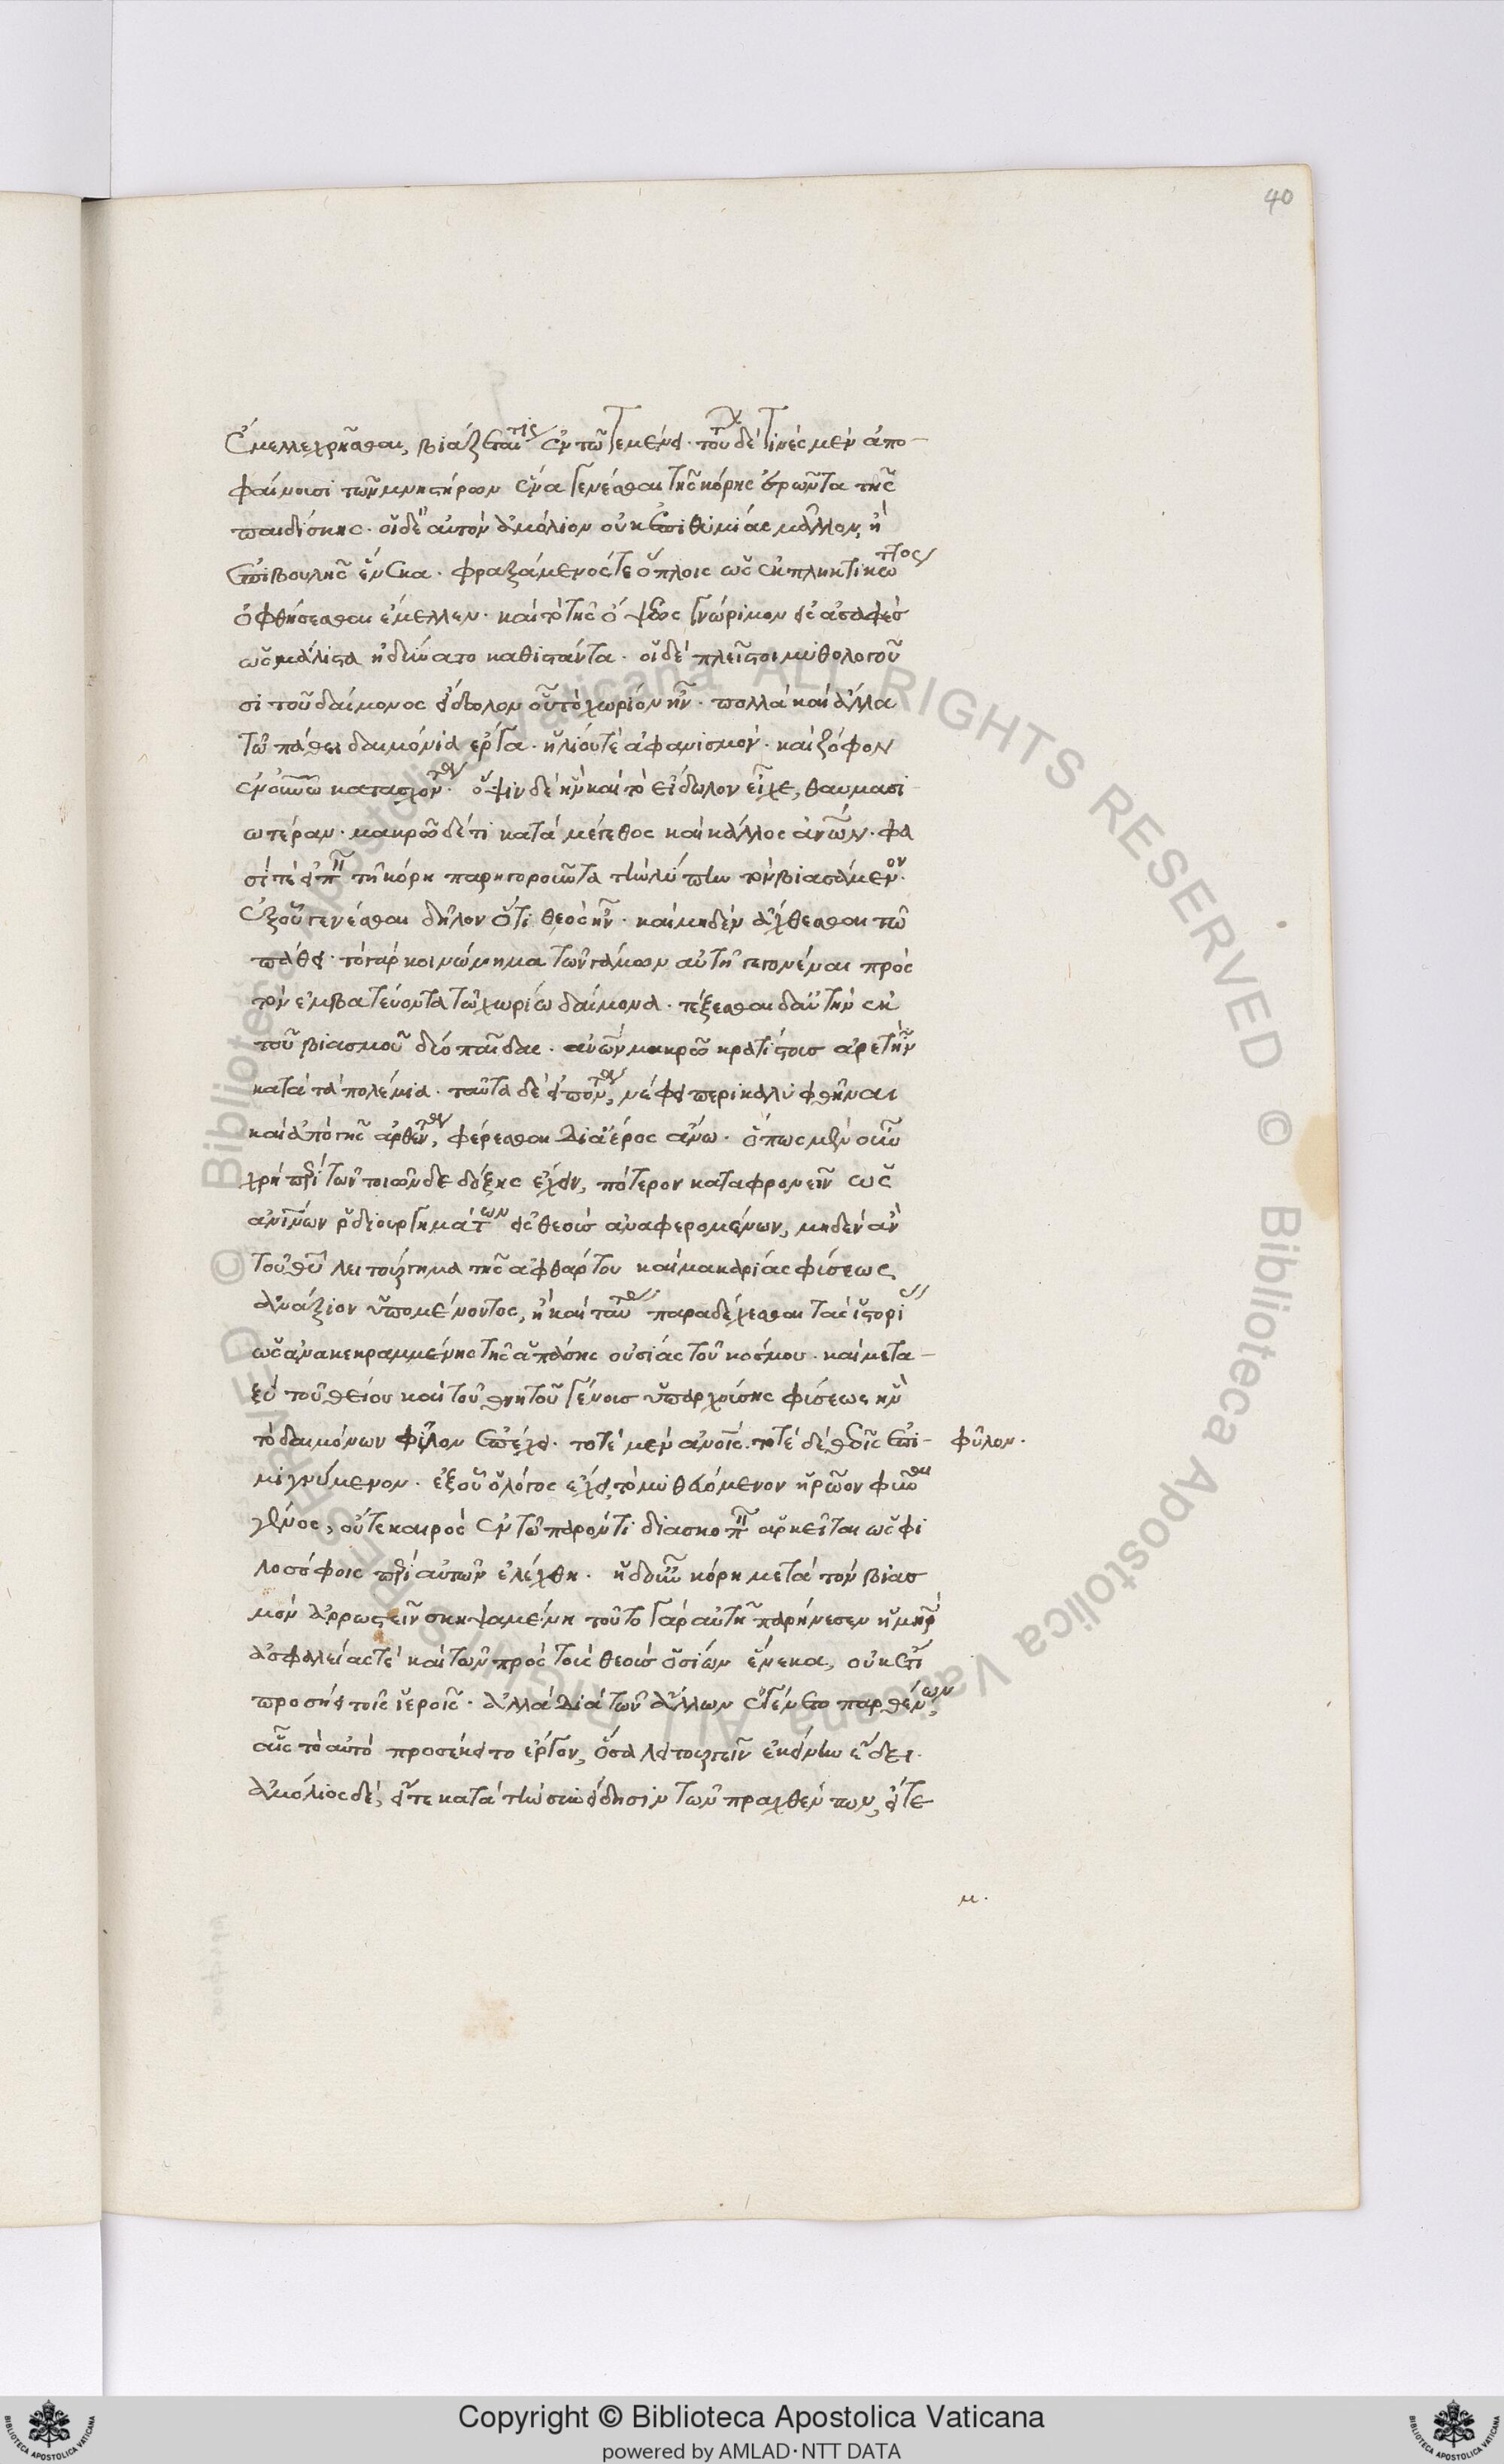 40
ἔμελλε χρῆσθαι, βιάζεταί τις ἐν τῶ τεμένει. τοῦτον δέ τινες μὲν ἀπο-
φαίνουσι τῶν μνηστήρων ἕνα γενέσθαι τῆς κόρης ἐρῶντα τῆς
παιδίσκης. οἱ δὲ αὐτὸν ἀμόλιον οὐκ ἐπιθυμίας μᾶλλον, ἢ
ἐπιβουλῆς ἕνεκα. φραξάμενός τε ὅπλοις ὡς ἐκπληκτικώτατος
ὀφθήσεσθαι ἔμελλεν. καὶ τὸ τῆς ὄψεως γνώριμον εἰς ἀσαφὲς
ὡς μάλιστα ἠδύνατο καθιστάντα. οἱ δὲ πλεῖστοι μυθολογοῦ
σι τοῦ δαίμονος εἴδωλον οὗ τὸ χωρίον ἦν. πολλὰ καὶ ἄλλα
τῶ πάθει δαιμόνια ἔργα. ἡλίου τὲ ἀφανισμόν. καὶ ζόφον
ἐν οὐρανῶ κατασχόντα. ὄψιν δὲ ἣν καὶ τὸ εἴδωλον εἶχε, θαυμασι
ωτέραν. μακρῶ δέ τι κατὰ μέγεθος καὶ κάλλος ἀνθρώπων. φα
σί τε εἰπεῖν τῆ κόρη παρηγοροῦντα τὴν λύπην τὸν βιασάμενον.
ἐξ οὗ γενέσθαι δῆλον ὅτι θεὸς ἦν. καὶ μηδὲν ἄχθεσθαι τῶ
πάθει. τὸ γὰρ κοινώνημα τῶν γάμων αὐτῆ γεγονέναι πρὸς
τὸν ἐμβατεύοντα τῶ χωρίω δαίμονα. τέξεσθαι δαὐτὴν ἐκ
τοῦ βιασμοῦ δύο παῖδας. ἀνθρώπων μακρῶ κρατίστους ἀρετὴν
κατὰ τὰ πολέμια. ταῦτα δὲ εἰπόντα, νέφει περικαλυφθῆναι
καὶ ἀπὸ γῆς ἀρθέντα, φέρεσθαι διαέρος ἄνω. ὅπως μὲν οὖν
χρὴ περὶ τῶν τοιῶνδε δόξης ἔχειν, πότερον καταφρονεῖν ὡς
ἀνθρωπίνων ῥαδιουργημάτων εἰς θεοὺς ἀναφερομένων, μηδὲν ἂν
τοῦ θεοῦ λειτούργημα τῆς ἀφθάρτου καὶ μακαρίας φύσεως
ἀνάξιον ὑπομένοντος, ἢ καὶ ταύτας παραδέχεσθαι τὰς ἱστορίας
ὡς ἀνακεκραμμένης τῆς ἁπάσης οὐσίας τοῦ κόσμου. καὶ μετα-
ξὺ τοῦ θείου καὶ τοῦ θνητοῦ γένους ὑπαρχούσης φύσεως ἣν
τὸ δαιμόνων φίλον ἐπέχει. τοτὲ μὲν ἀνθρώποις. τοτὲ δὲ θεοῖς ἐπι- φῦλον.
μιγνύμενον. ἐξ οὗ ὁ λόγος ἔχει τὸ μυθευόμενον ἡρώων φῦναι
γένος, οὔτε καιρὸς ἐν τῶ παρόντι διασκοπεῖν ἀρκεῖται ὡς φι
λοσόφοις περὶ αὐτῶν ἐλέχθη. ἡ δοὖν κόρη μετὰ τὸν βιασ
μὸν ἀρρωστεῖν σκηψαμένη τοῦτο γὰρ αὐτῆ παρήνεσεν ἡ μήτηρ
ἀσφαλείας τὲ καὶ τῶν πρὸς τοὺς θεοὺς ὁσίων ἕνεκα, οὐκ ἔτι
προσήει τοῖς ἱεροῖς. ἀλλὰ διὰ τῶν ἄλλων ἐγένετο παρθένων,
αἷς τὸ αὐτὸ προσέκειτο ἔργον, ὅσα λειτουργεῖν ἐκείνην ἔδει.
ἀμόλιος δὲ, εἴτε κατὰ τὴν συνείδησιν τῶν πραχθέντων, εἴτε
μ.
© Biblioteca Apostolica Vaticana ALL RIGHTS RESERVED © Biblioteca Apostolica Vaticana ALL RIGHTS RESERVED
Copyright © Biblioteca Apostolica Vaticana
powered by AMLAD·NTT DATA
BIBLIOTECA APOSTOLICA VATICANA
BIBLIOTECA APOSTOLICA VATICANA